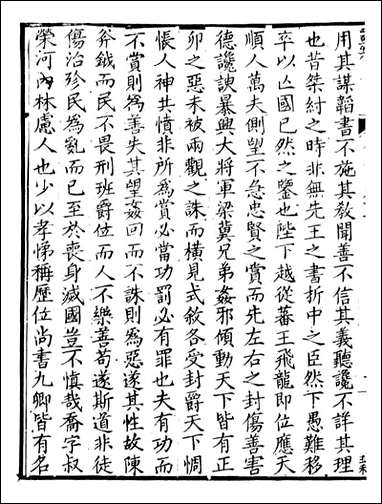 用其謀韜書不施其教聞善不信其義聽讒不詳其理
也昔桀紂之時非無先王之書折中之臣然下愚難移
卒以亾國已然之鑒也陛下越從蕃王飛龍即位應天
順人萬夫側望不急忠賢之賞而先左右之封傷善害
德讒諛暴興大將軍梁冀兄弟姦邪傾動天下皆有正
卯之惡未被兩觀之誅而橫見式敘各受封爵天下惆
悵人神共憤非所為賞必當功罰必有罪也夫有功而
不賞則為善失其望姦回而不誅則為惡遂其性故陳
斧鉞而民不畏刑班爵位而人不樂善苟遂斯道非徒
傷治殄民為亂而已至於喪身滅國豈不慎哉喬字叔
榮河內林慮人也少以孝悌稱歷位尚書九卿皆有名